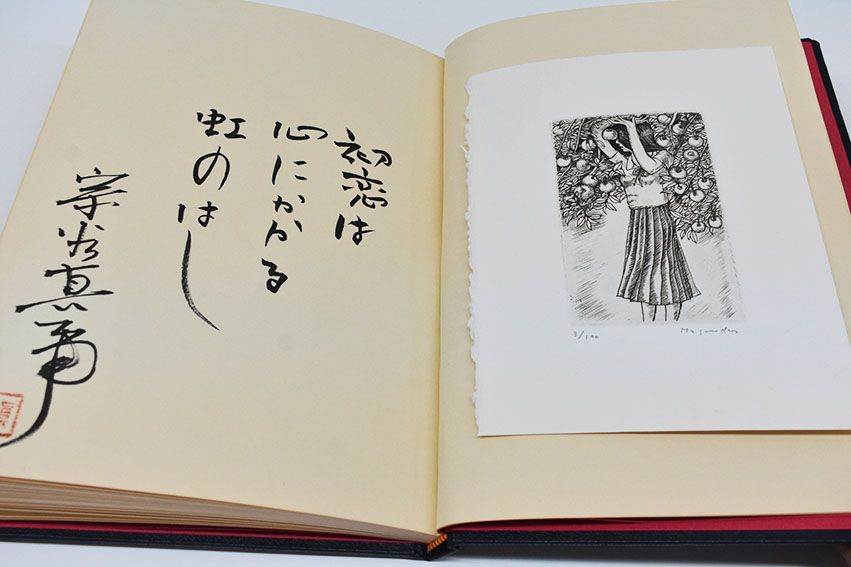 初恋は
心にかかる
虹のはし
宗谷真爾
3/100